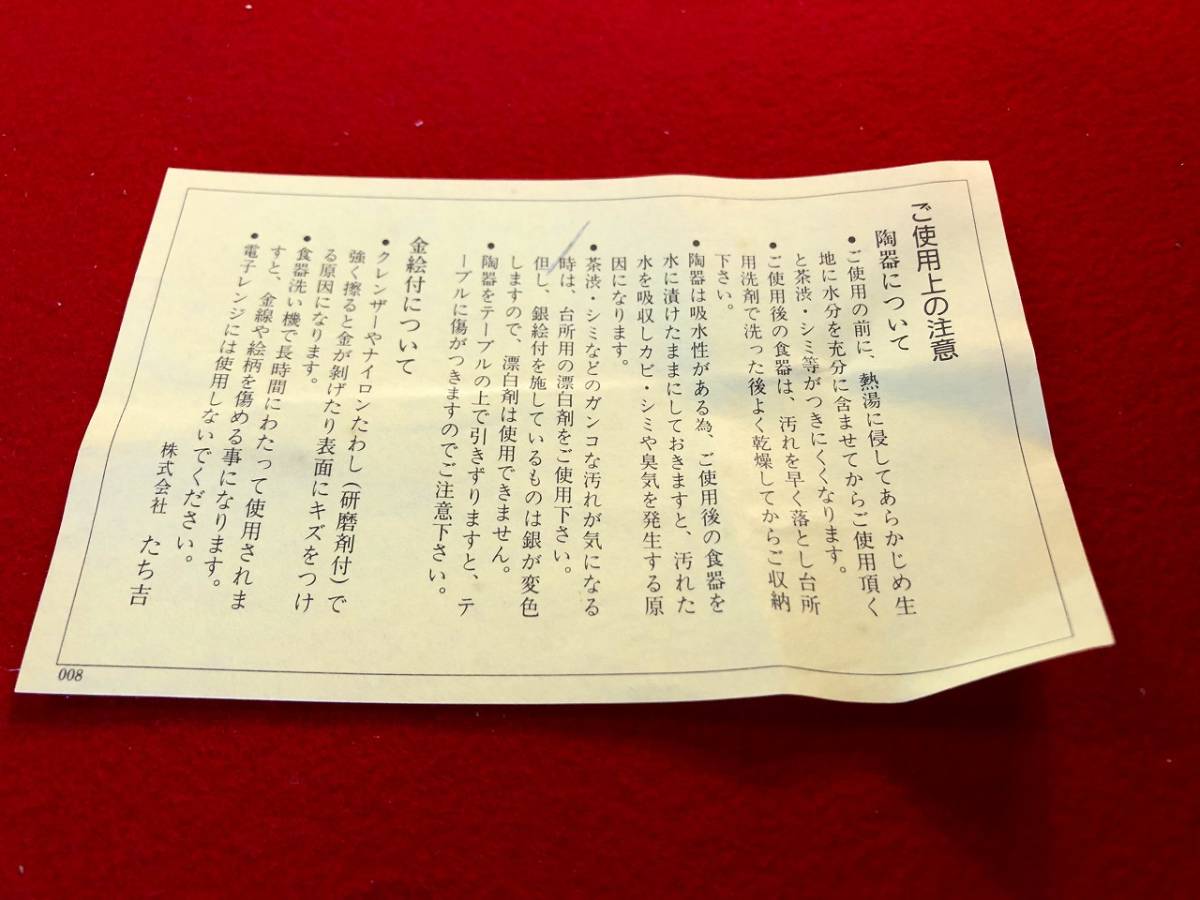 ご使用上の注意
陶器について
●ご使用の前に、熱湯に侵してあらかじめ生
地に水分を充分に含ませてからご使用頂く
と茶渋・シミ等がつきにくくなります。
●ご使用後の食器は、汚れを早く落とし台所
用洗剤で洗った後よく乾燥してからご収納
下さい。
●陶器は吸水性がある為、ご使用後の食器を
水に漬けたままにしておきますと、汚れた
水を吸収しカビ・シミや臭気を発生する原
因になります。
●茶渋・シミなどのガンコな汚れが気になる
時は、台所用の漂白剤をご使用下さい。
但し、銀絵付を施しているものは銀が変色
しますので、漂白剤は使用できません。
●陶器をテーブルの上で引きずりますと、テ
ーブルに傷がつきますのでご注意下さい。
金絵付について
●クレンザーやナイロンたわし(研磨剤付)で
強く擦ると金が剝げたり表面にキズをつけ
る原因になります。
●食器洗い機で長時間にわたって使用されま
すと、金線や絵柄を傷める事になります。
●電子レンジには使用しないでください。
株式会社 たち吉
008